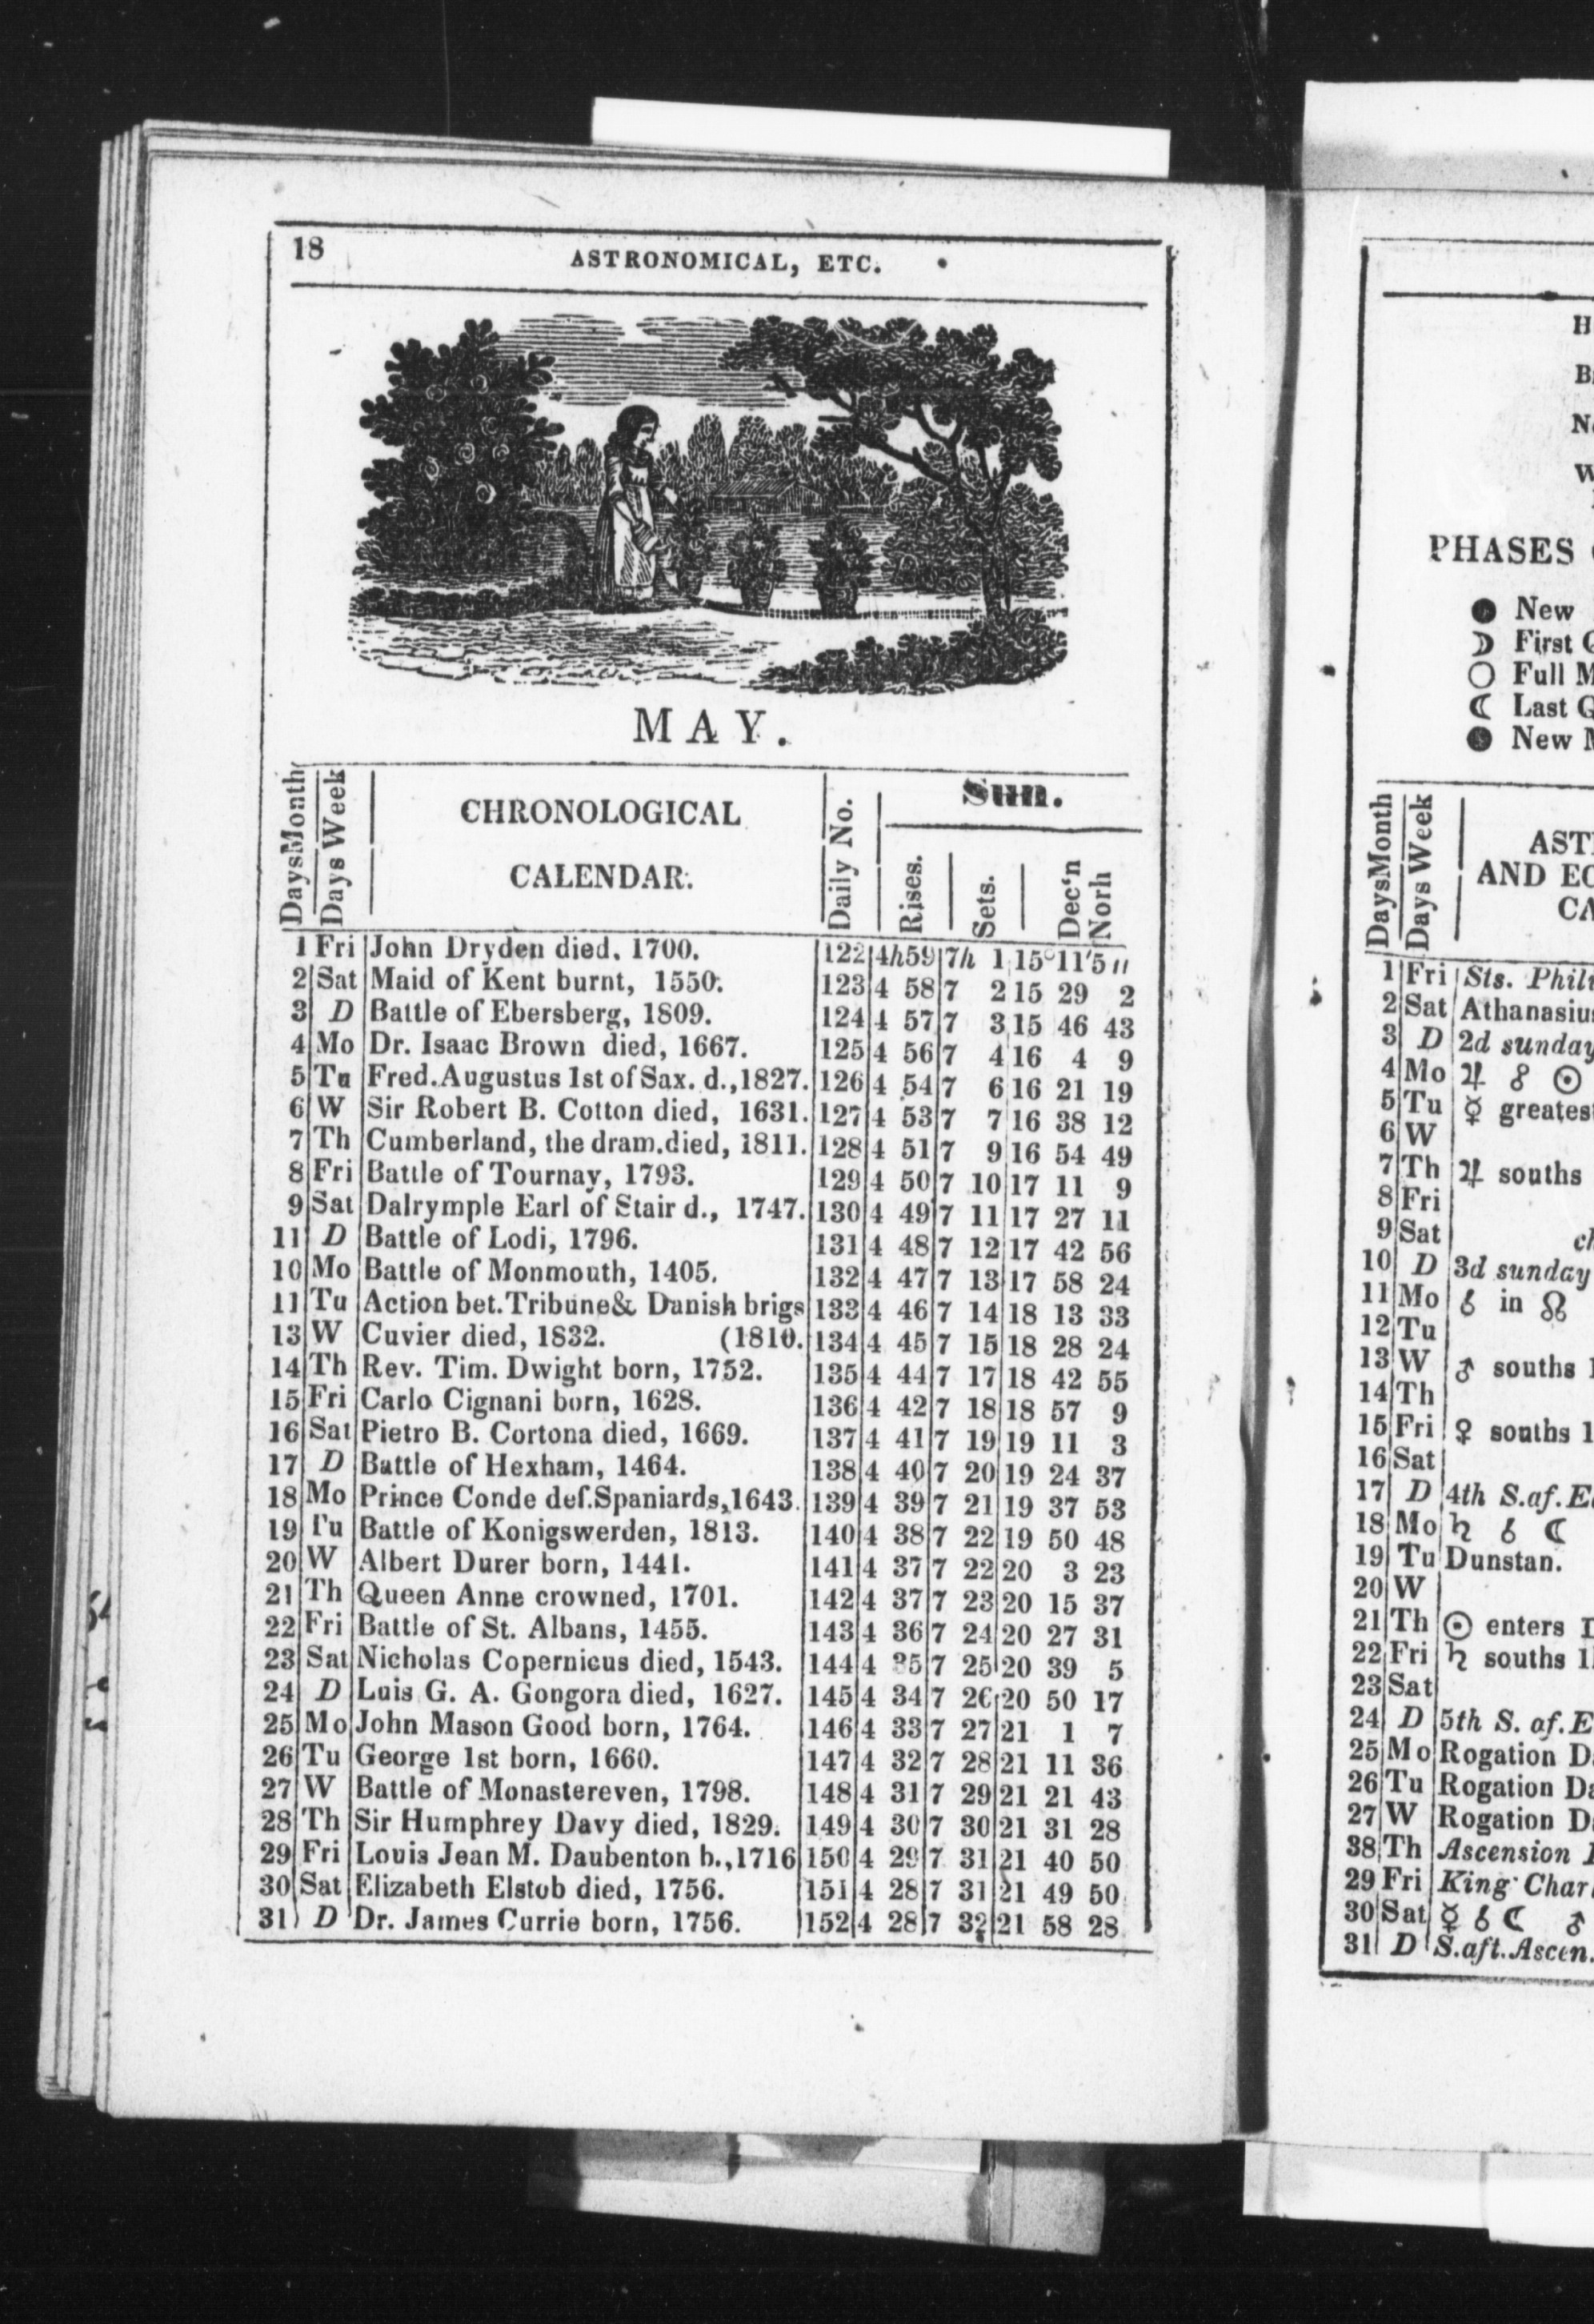 18
ASTRONOMICAL, ETC.
MAY.
DaysMonth
Days Week
CHRONOLOGICAL
CALENDAR.
Daily No.
Sun.
Rises.
Sets.
Dec'n
Norh
1 Fri John Dryden died, 1700. 122 4h59 7h 1 15°11'5"
2 Sat Maid of Kent burnt, 1550. 123 4 58 7 2 15 29 2
3 D Battle of Ebersberg, 1809. 124 4 57 7 3 15 46 43
4 Mo Dr. Isaac Brown died, 1667. 125 4 56 7 4 16 4 9
5 Tu Fred.Augustus 1st of Sax. d.,1827. 126 4 54 7 6 16 21 19
6 W Sir Robert B. Cotton died, 1631. 127 4 53 7 7 16 38 12
7 Th Cumberland, the dram.died, 1811. 128 4 51 7 9 16 54 49
8 Fri Battle of Tournay, 1793. 129 4 50 7 10 17 11 9
9 Sat Dalrymple Earl of Stair d., 1747. 130 4 49 7 11 17 27 11
11 D Battle of Lodi, 1796. 131 4 48 7 12 17 42 56
10 Mo Battle of Monmouth, 1405. 132 4 47 7 13 17 58 24
11 Tu Action bet.Tribune& Danish brigs 133 4 46 7 14 18 13 33
13 W Cuvier died, 1832. (1810. 134 4 45 7 15 18 28 24
14 Th Rev. Tim. Dwight born, 1752. 135 4 44 7 17 18 42 55
15 Fri Carlo Cignani born, 1628. 136 4 42 7 18 18 57 9
16 Sat Pietro B. Cortona died, 1669. 137 4 41 7 19 19 11 3
17 D Battle of Hexham, 1464. 138 4 40 7 20 19 24 37
18 Mo Prince Conde def.Spaniards,1643. 139 4 39 7 21 19 37 53
19 Tu Battle of Konigswerden, 1813. 140 4 38 7 22 19 50 48
20 W Albert Durer born, 1441. 141 4 37 7 22 20 3 23
21 Th Queen Anne crowned, 1701. 142 4 37 7 23 20 15 37
22 Fri Battle of St. Albans, 1455. 143 4 36 7 24 20 27 31
23 Sat Nicholas Copernicus died, 1543. 144 4 35 7 25 20 39 5
24 D Luis G. A. Gongora died, 1627. 145 4 34 7 26 20 50 17
25 Mo John Mason Good born, 1764. 146 4 33 7 27 21 1 7
26 Tu George 1st born, 1660. 147 4 32 7 28 21 11 36
27 W Battle of Monastereven, 1798. 148 4 31 7 29 21 21 43
28 Th Sir Humphrey Davy died, 1829. 149 4 30 7 30 21 31 28
29 Fri Louis Jean M. Daubenton b.,1716 150 4 29 7 31 21 40 50
30 Sat Elizabeth Elstob died, 1756. 151 4 28 7 31 21 49 50
31 D Dr. James Currie born, 1756. 152 4 28 7 32 21 58 28
PHASES
● New
☽ First Q
○ Full M
☾ Last Q
● New M
DaysMonth
Days Week
AST
AND EC
CA
1 Fri Sts. Phili
2 Sat Athanasius
3 D 2d sunday
4 Mo ♃ ☍ ☉
5 Tu ☿ greatest
6 W
7 Th ♃ souths
8 Fri
9 Sat ch
10 D 3d sunday
11 Mo ☌ in ☊
12 Tu
13 W ♂ souths 1
14 Th
15 Fri ♀ souths 1
16 Sat
17 D 4th S.af.E
18 Mo ♄ ☌ ☾
19 Tu Dunstan.
20 W
21 Th ☉ enters
22 Fri ♄ souths 1
23 Sat
24 D 5th S. af.E
25 Mo Rogation D
26 Tu Rogation Da
27 W Rogation D
38 Th Ascension
29 Fri King Charl
30 Sat ☿ ☌ ☾ ♂
31 D S.aft.Ascen.